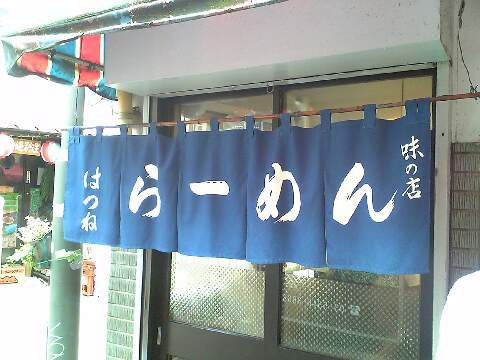 味の店
らーめん
はつね